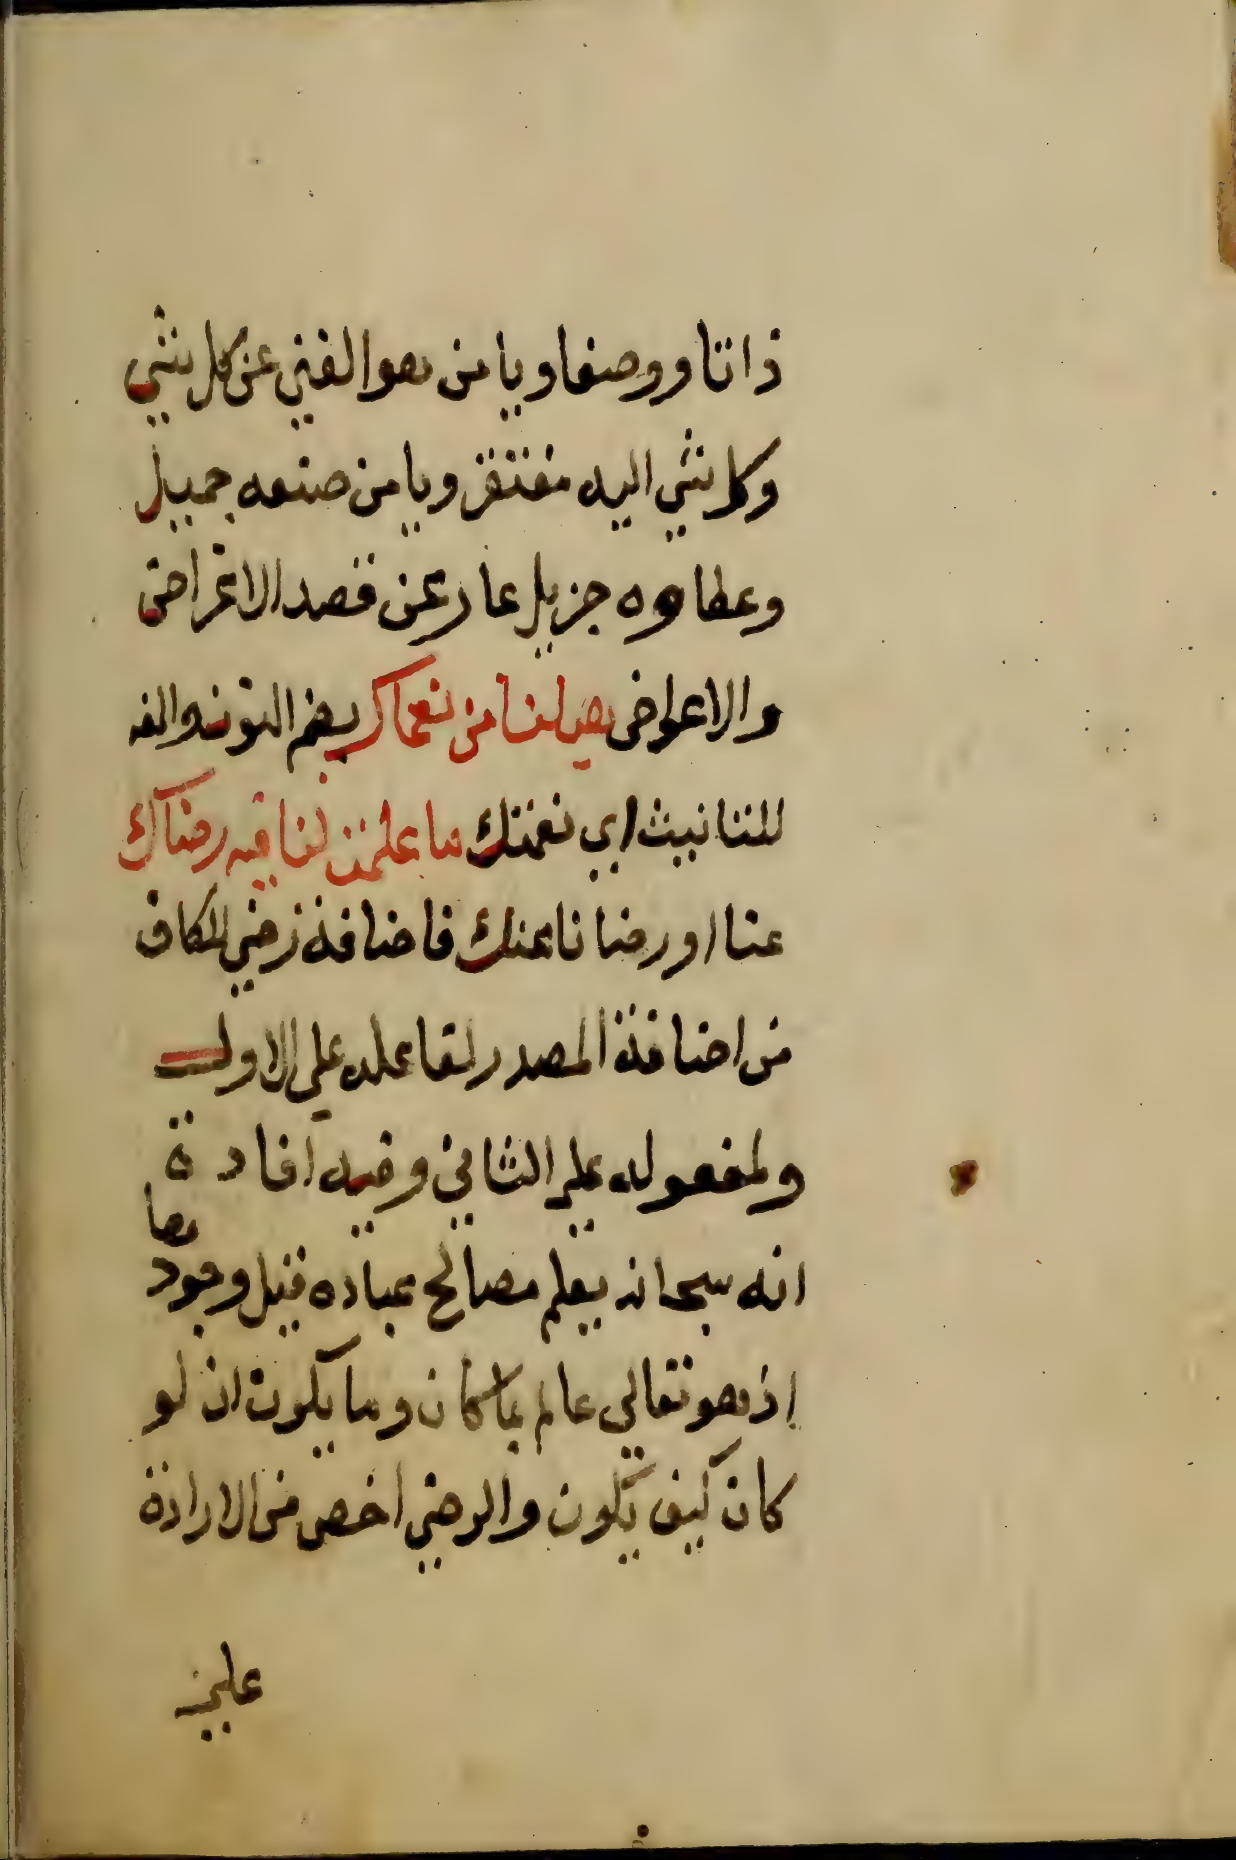 ذاتا ووصفا ويا من هو الغني عن كل شي
وكل شي اليه مفتقر ويا من صنعه جميل
وعطاوه جزيل عار عن قصد الاغراض
والاعواض هب لنا من نعماك بضم النون والفه
للتانيث اي نعمتك ما علمت لنا فيه رضاك
عنا او رضانا عنك فاضافة رضي للكاف
من اضافة المصدر لفاعله علي الاول
ولمفعوله علي الثاني وفيه افادة
انه سبحانه يعلم مصالح عباده قبل وجودها
اذ هو تعالي عالم بما كان وما يكون ان لو
كان كيف يكون والرضي اخص من الارادة
علي